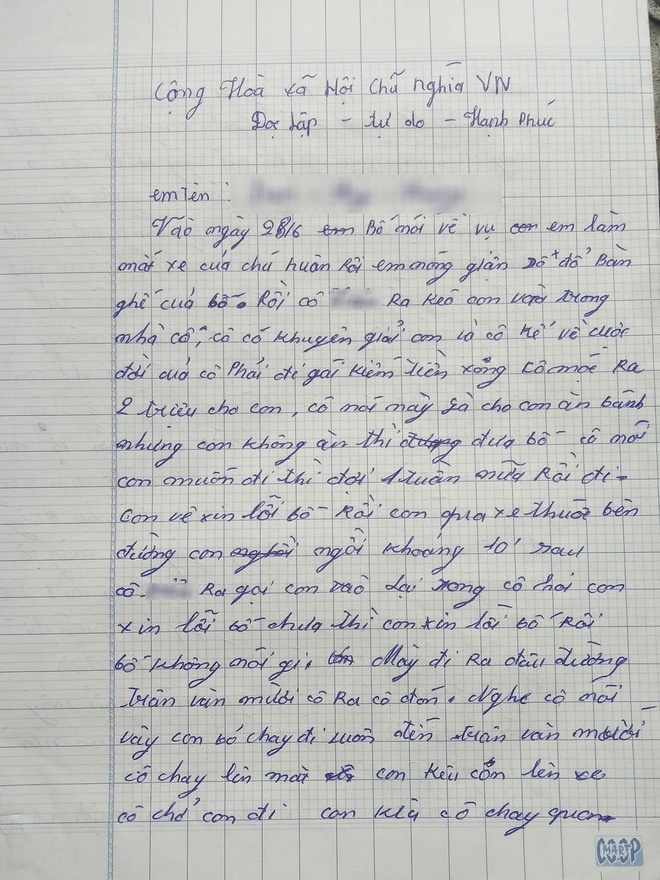 Cộng Hoà xã Hội chủ nghĩa VN
Độc lập - tự do - Hạnh Phúc
em tên :
Vào ngày 28/6 Bố nói về vụ em làm
mất xe của chú huân Rồi em nóng giận Bàn
ghế của bố. Rồi cô Ra kéo con vào trong
nhà cô, cô có khuyên giải con là cô kể về cuộc
đời của cô Phải đi gái kiếm tiền xong cô móc Ra
2 triệu cho con, cô nói này là cho con ăn bánh
nhưng con không ăn thì đưa bố - cô nói
con muốn đi thì đợi 1 tuần nữa Rồi đi -
con về xin lỗi bố - Rồi con qua xe thuốc bên
đường con ngồi khoảng 10' sau
cô. Ra gọi con vào lại xong cô hỏi con
xin lỗi bố chưa thì con xin lỗi bố Rồi
bố không nói gì, Mày đi Ra đầu đường
trần văn mười cô Ra cô đón. Nghe cô nói
vậy con bỏ chạy đi luôn đến trần văn mười
cô chạy lên mà con kêu con lên xe
cô chở con đi con cô chạy
CO.OP MART